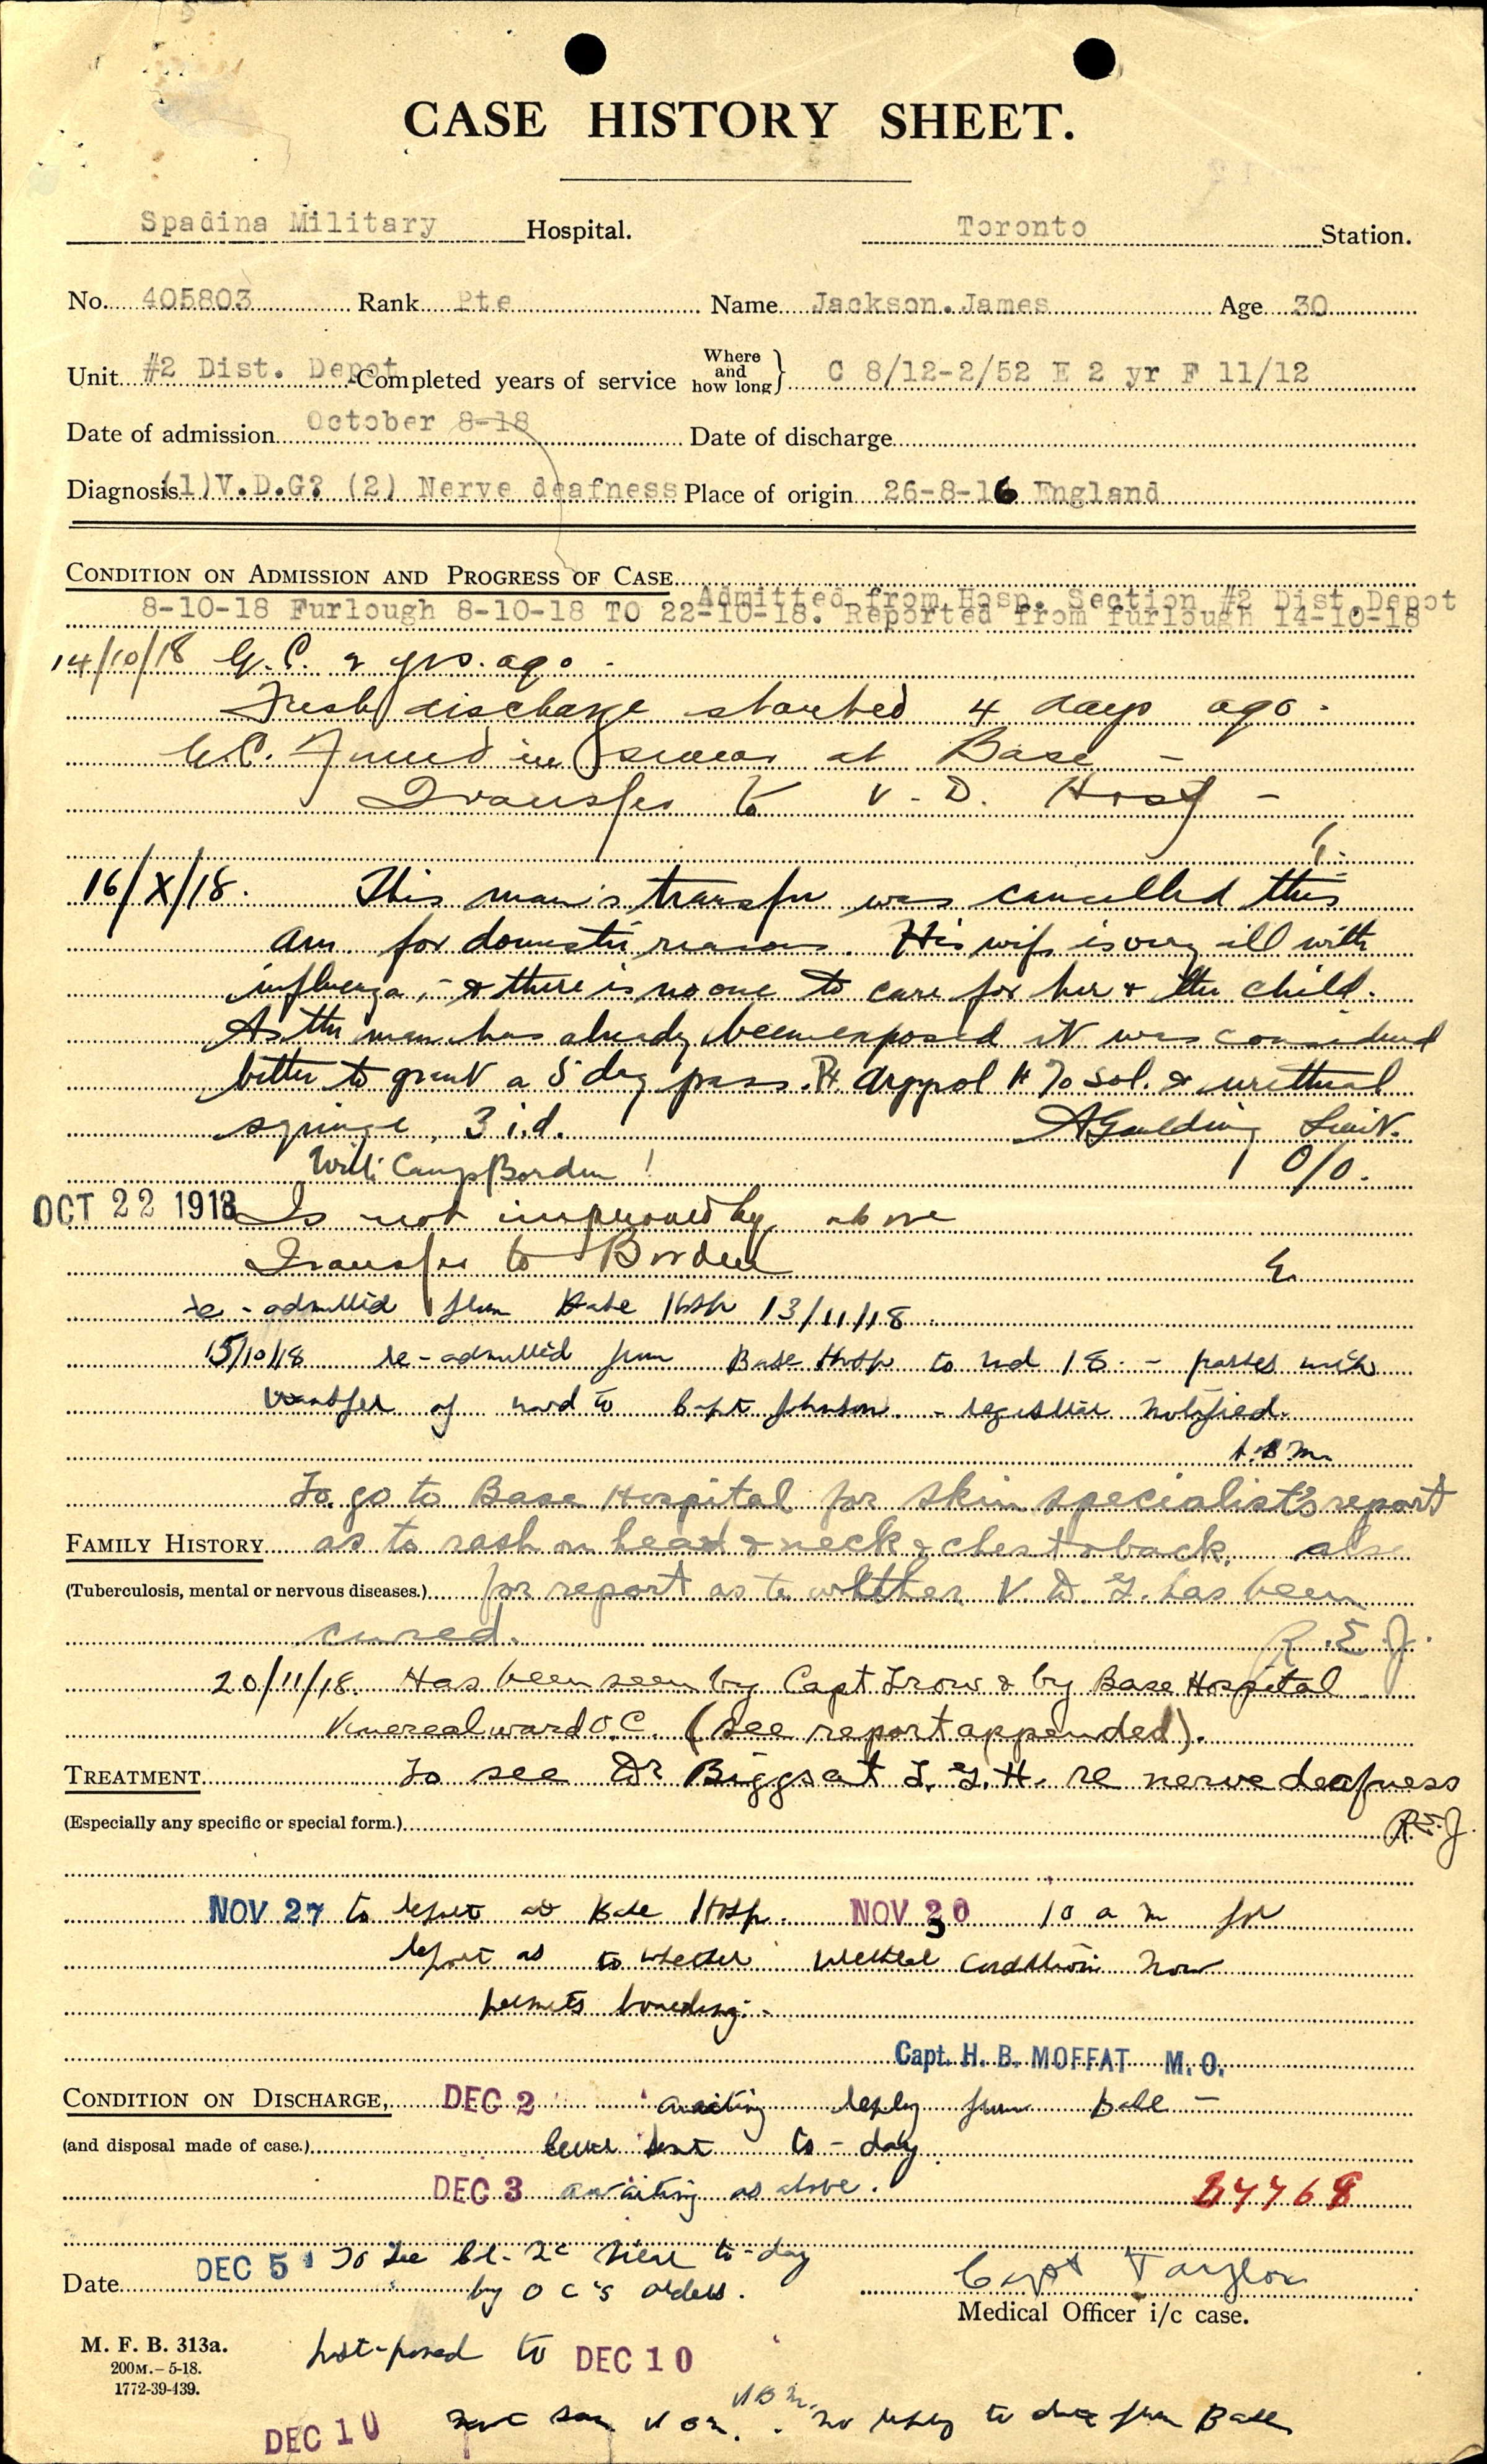 CASE HISTORY SHEET.
Spadina Military Hospital. Toronto Station.
No. 405803 Rank Pte Name Jackson.James Age 30
Unit #2 Dist. Depot Completed years of service Where and how long} C 8/12-2/52 E 2 yr F 11/12
Date of admission October 8-18 Date of discharge
Diagnosis (1)V.D.G? (2) Nerve deafness Place of origin 26-8-16 England
CONDITION ON ADMISSION AND PROGRESS OF CASE
Admitted from Hosp. Section #2 Dist.Depot
8-10-18 Furlough 8-10-18 TO 22-10-18. Reported from furlough 14-10-18
14/10/18 G.C. 2 yrs. ago -
Fresh discharge started 4 days ago -
G.C. Found in smear at Base -
Transfer to V.D. Hosp -
16/X/18. This man's transfer was cancelled this
am for domestic reasons. His wife is very ill with
influenza, - & there is no one to care for her & the child.
As the man has already been exposed it was considered
better to grant a 5 day pass. Rx Argyrol % sol. & urethral
syringe, 3 i.d. AGoulding Lieut.
Write Camp Borden! O/O.
OCT 22 1918 Is not improved by above
Transfer to Borden
re-admitted from Base Hosp 13/11/18
15/10/18 re-admitted from Base Hosp to wd 18. - passes with
transfer of ward to Capt Johnson. - registrar notified.
H.B.M.
To go to Base Hospital for skin specialist's report
FAMILY HISTORY as to rash on head & neck & chest & back, also
(Tuberculosis, mental or nervous diseases.) for report as to whether V.D.G. has been
cured. R.E.J.
20/11/18. Has been seen by Capt Trow & by Base Hospital
Venereal ward O.C. (see report appended).
TREATMENT To see Dr Biggs at T.G.H. re nerve deafness
(Especially any specific or special form.) R.E.J.
NOV 27 to report at Base Hosp. NOV 30 10 a m for
report as to whether urethral condition now
permits boarding. -
Capt. H. B. MOFFAT M. O.
CONDITION ON DISCHARGE, DEC 2 awaiting reply from Base -
(and disposal made of case.) letter sent to-day
DEC 3 awaiting as above.
DEC 5 To see to-day
Date by O C's orders. Capt Taylor
Medical Officer i/c case.
M. F. B. 313a.
200M.-5-18.
1772-39-439.
post-poned to DEC 10
H B M.
DEC 10 no reply to date from Base